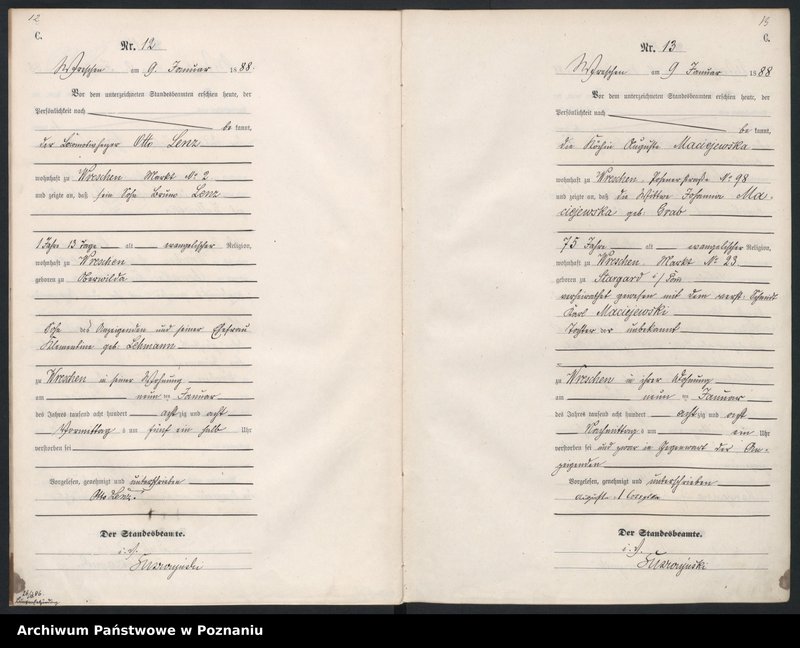 12
C.
Nr. 12
Wreschen am 9. Januar 1888.
Vor dem unterzeichneten Standesbeamten erschien heute, der
Persönlichkeit nach
be kannt,
der Locomotivheizer Otto Lenz
wohnhaft zu Wreschen Markt No 2
und zeigte an, daß sein Sohn Bruno Lenz
1 Jahr 13 Tage alt evangelischer Religion,
wohnhaft zu Wreschen
geboren zu Oberwilda
Sohn des Anzeigenden und seiner Ehefrau
Klementine geb: Lehmann
zu Wreschen in seiner Wohnung
am neun ten Januar
des Jahres tausend acht hundert achtzig und acht
Vormittag s um fünf ein halb Uhr
verstorben sei
Vorgelesen, genehmigt und unterschrieben
Otto Lenz.
Der Standesbeamte.
i. V.
13
C.
Nr. 13
Wreschen am 9 Januar 1888
Vor dem unterzeichneten Standesbeamten erschien heute, der
Persönlichkeit nach
be kannt,
die Köchin Auguste Maciejewska
wohnhaft zu Wreschen, Posenerstraße No 98
und zeigte an, daß die Wittwe Johanna Ma-
ciejewska geb: Grab
75 Jahre alt evangelischer Religion,
wohnhaft zu Wreschen. Markt No 23
geboren zu Stargard i/Pom
verheirathet gewesen mit dem verst:
Karl Maciejewski
Tochter der unbekannt
zu Wreschen in ihrer Wohnung
am neun ten Januar
des Jahres tausend acht hundert achtzig und acht
Nachmittag s um ein Uhr
verstorben sei und zwar in Gegenwart der An-
zeigenden
Vorgelesen, genehmigt und unterschrieben
Der Standesbeamte.
i. V.
Archiwum Państwowe w Poznaniu